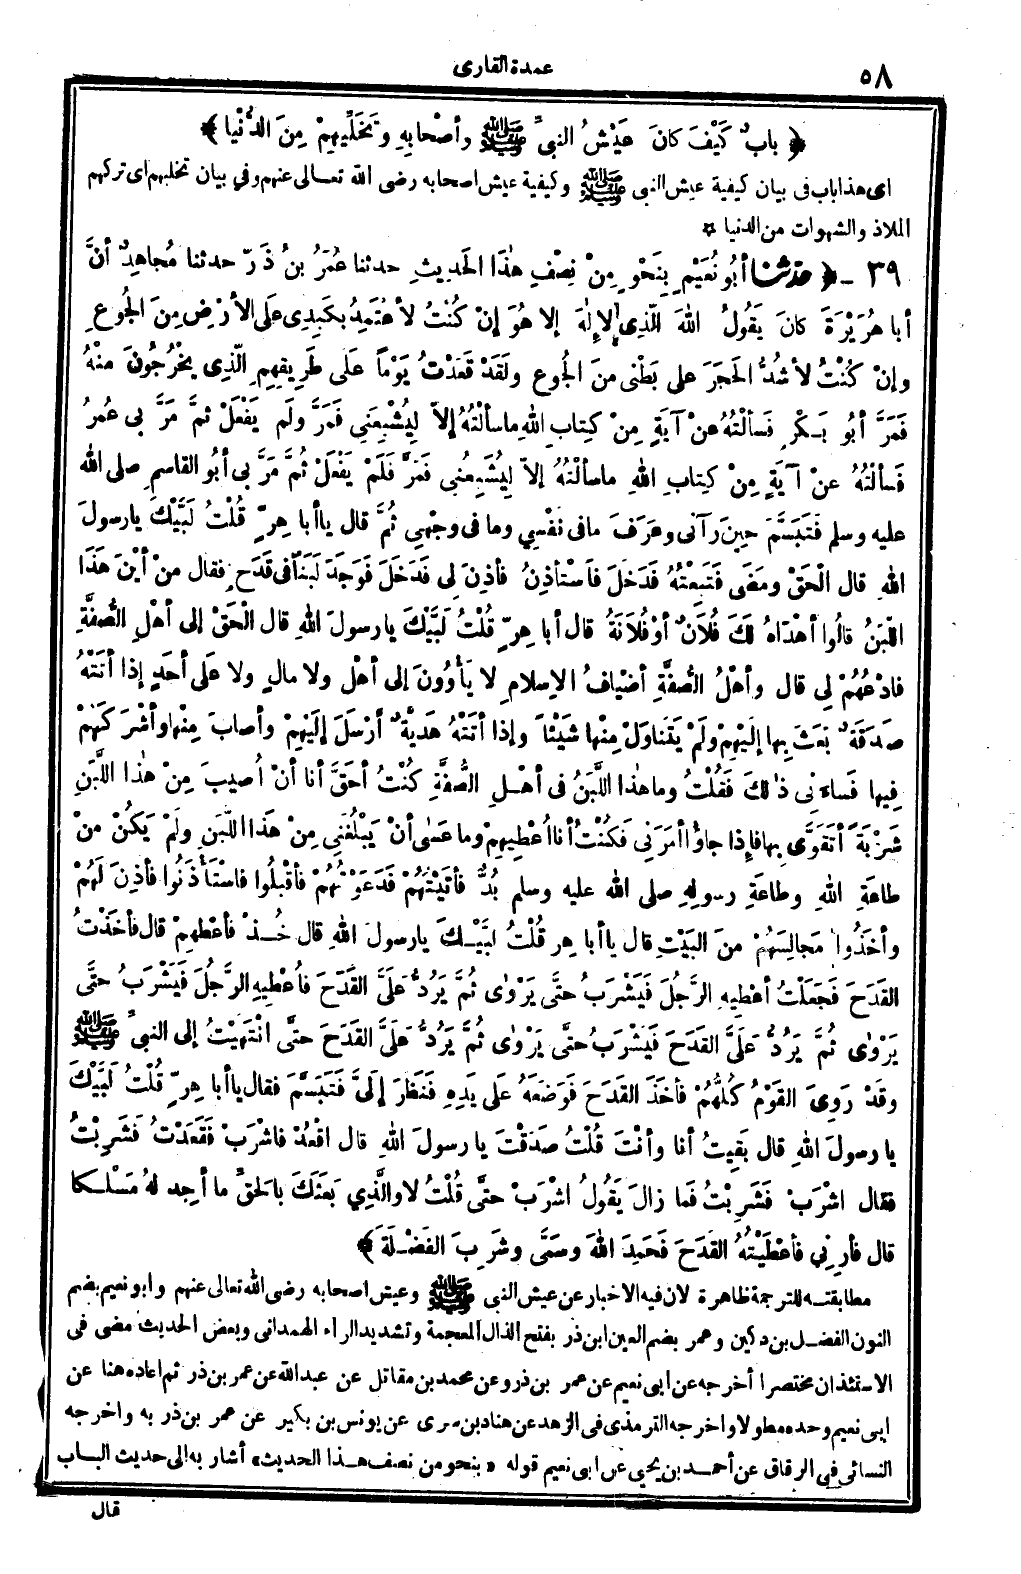 ٥٨
عمدة القارى
﴿ بابٌ كَيْفَ كانَ عَيْشُ النبىِّ ﷺ وأصْحابِهِ وتَخَلِّيهِمْ مِنَ الدُّنْيا ﴾
اى هذا باب فى بيان كيفية عيش النبى ﷺ وكيفية عيش اصحابه رضى الله تعالى عنهم وفى بيان تخليهم اى تركهم
الملاذ والشهوات من الدنيا ☆
٣٩ - ﴿ حدثنا أبُو نُعَيْمٍ بِنَحْوٍ مِنْ نِصْفِ هٰذَا الحَدِيثِ حدثنا عُمَرُ بنُ ذَرّ حدثنا مُجاهِدٌ أنَّ
أبا هُرَيْرَةَ كانَ يَقُولُ اللهَ الَّذِى لاإلٰهَ إلا هُوَ إنْ كُنْتُ لأَعْتَمِدُ بِكَبِدِى عَلَى الأرْضِ مِنَ الجُوعِ
وإنْ كُنْتُ لأشُدُّ الحَجَرَ على بَطْنى منَ الجُوع ولقَدْ قَعَدْتُ يَوْماً عَلى طَرِيقِهِمِ الَّذِى يَخْرُجُونَ منْهُ
فَمَرَّ أبُو بَـكْرٍ فَسَألْتُهُ عنْ آيَةٍ مِنْ كِتابِ اللهِ ماسألْتُهُ إلاّ لِيُشْبِعَنِى فَمَرَّ ولَم يَفْعَلْ ثمَّ مَرَّ بى عُمَرُ
فَسألْتُهُ عنْ آيَةٍ مِنْ كِتابِ اللهِ ماسألْتُهُ إلاّ لِيُشْبِعَنِى فَمَرَّ فَلَمْ يَفْعَلْ ثُمَّ مَرَّ بى أبُو القاسمِ صلى الله
عليه وسلم فَتَبَسَّمَ حِينَ رآنى وعَرَفَ مافى نفْسِي وما فى وجْهِى ثُمَّ قال ياأبا هِرٍّ قُلْتُ لَبَّيْكَ يارسولَ
اللهِ قال الْحَقْ ومَضَى فَتَبِعْتُهُ فَدَخَلَ فاسْتأذِنُ فأذِنَ لى فَدَخَلَ فَوَجَدَ لَبَناً فى قَدَحٍ فقال منْ أيْنَ هَذَا
اللّبَنُ قالُوا أهْدَاهُ لَكَ فُلاَنٌ أوْفُلانَةُ قال أبا هِرٍّ قُلْتُ لَبَّيْكَ يارسولَ اللهِ قال الْحَقْ إلى أهْلِ الصُّفَّةِ
فادْعُهُمْ لِى قال وأهْلُ الصُّفَّةِ أضْيافُ الإِسلامِ لا يَأْوُونَ إلى أهْلٍ ولا مالٍ ولا عَلى أحَدٍ إذا أتَتْهُ
صَدَقَةٌ بَعَثَ بِها إلَيْهِمْ ولَمْ يَتَناوَلْ مِنْها شَيْئاً وإذا أتَتْهُ هَدِيَّةٌ أرْسَلَ إلَيْهِمْ وأصابَ مِنْها وأشْرَكَهُمْ
فِيها فَساءَنِى ذٰلكَ فَقُلْتُ وماهٰذا اللَّبَنُ فى أهْـلِ الصُّفَّةِ كُنْتُ أحَقَّ أنا أنْ أُصِيبَ مِنْ هٰذا اللَّبَنِ
شَرْبَةً أتَقَوَّى بِها فإِذا جاؤُا أمَرَنِى فَكُنْتُ أنا أُعْطِيهِمْ وما عَسٰى أنْ يَبْلُغَنِى مِنْ هَذا اللّبَنِ ولَمْ يَكُنْ منْ
طاعَةِ اللهِ وطاعَةِ رسولِهِ صلى الله عليه وسلم بُدٌّ فأتَيْتُهُمْ فَدَعَوْتُهُمْ فأقْبلُوا فاسْتَأْذَنُوا فأذِنَ لَهُمْ
وأخَذُوا مَجالِسَهُمْ منَ البَيْتِ قال ياأبا هِر قُلْتُ لبَّيْـكَ يارسولَ اللهِ قال خُـذْ فأعْطِهِمْ قال فأخَذْتُ
القَدَحَ فَجَعَلْتُ أعْطيهِ الرَّجُلَ فَيَشْرَبُ حتَّى يَرْوٰى ثُمَّ يَرُدُّ عَلَىَّ القَدَحَ فأُعْطِيهِ الرَّجُلَ فَيَشْرَبُ حتَّى
يَرْوٰى ثُمَّ يَرُدُّ عَلَىَّ القَدَحَ فَيَشْرَبُ حتَّى يَرْوٰى ثُمَّ يَرُدُّ عَلَىَّ القَدَحَ حتَّى انْتَهَيْتُ إلى النبىِّ ﷺ
وقَدْ رَوِىَ القَوْمُ كُلُّهُمْ فأخَذَ القَدَحَ فَوَضَعَهُ عَلى يَدِهِ فَنَظَرَ إلَىَّ فَتَبَسَّمَ فقال ياأبا هِرٍّ قُلْتُ لَبَّيْكَ
يارسولَ اللهِ قال بَقِيتُ أنا وأنْتَ قُلْتُ صَدَقْتَ يارسولَ اللهِ قال اقْعُدْ فاشْرَبْ فَقَعَدْتُ فَشَرِبْتُ
فقال اشْرَبْ فَشَرِبْتُ فَما زالَ يَقُولُ اشْرَبْ حتَّى قُلْتُ لا والَّذِى بَعَثَكَ بالحَقِّ ما أجِدُ لهُ مَسْلَـكا
قال فأرِنِى فأعْطَيْتُهُ القَدَحَ فَحَمِدَ اللهَ وسَمَّى وشَرِبَ الفَضْـلَةَ ﴾
مطابقتـه للترجمة ظاهرة لان فيه الاخبار عن عيش النبى ﷺ وعيش اصحابه رضى الله تعالى عنهم وابو نعيم بضم
النون الفضـل بن دكين وعمر بضم العين ابن ذر بفتح الذال المعجمة وتشديد الراء الهمدانى وبعض الحديث مضى فى
الاستئذان مختصرا أخرجه عن ابى نعيم عن عمر بن ذر وعن محمد بن مقاتل عن عبد الله عن عمر بن ذر ثم اعاده هنا عن
ابى نعيم وحده مطولا واخرجه الترمذى فى الزهد عن هناد بن سرى عن يونس بن بكير عن عمر بن ذر به واخرجه
النسائى فى الرقاق عن أحمـد بن يحيى عن ابى نعيم قوله «بنحو من نصف هـذا الحديث» أشار به الى حديث البـاب
قال